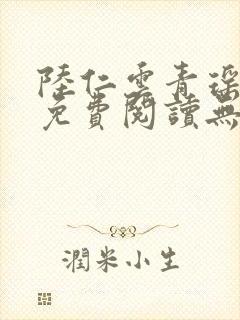 陸仁雲青瑶
免費閱讀無
潤米小生